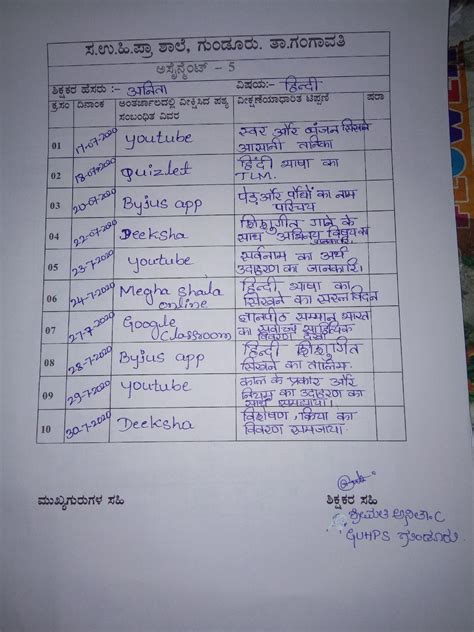 ಸ.ಉ.ಹಿ.ಪ್ರಾ ಶಾಲೆ, ಗುಂಡೂರು. ತಾ.ಗಂಗಾವತಿ
ಅಸೈನ್ಮೆಂಟ್ - 5
ಶಿಕ್ಷಕರ ಹೆಸರು :- अनिता ವಿಷಯ:- हिन्दी
ಕ್ರ.ಸಂ ದಿನಾಂಕ ಅಂತರ್ಜಾಲದಲ್ಲಿ ವೀಕ್ಷಿಸಿದ ಪಠ್ಯ ಸಂಬಂಧಿತ ವಿವರ ವೀಕ್ಷಣೆಯಾಧಾರಿತ ಟಿಪ್ಪಣಿ ಷರಾ
01 17-07-2020 youtube स्वर और व्यंजन सिखने
आसानी तरिका
02 18-07-2020 Quizlet हिंदी भाषा का
TLM.
03 20-07-2020 Byjus app पेड़ और पौधों का नाम
परिचय
04 22-07-2020 Deeksha शिशुगीत गाने के
साथ अभिनय
05 23-7-2020 youtube सर्वनाम का अर्थ
उदाहरण का जानकारि।
06 24-7-2020 Megha shala
online हिन्दी भाषा का
सिखने का सरल
07 27-7-2020 Google
classroom ज्ञानपीठ सम्मान भारत
का सर्वोच्च साहित्यिक
विवरण
08 28-7-2020 Byjus app हिन्दी शिशुगीत
सिखने का तालिम.
09 29-7-2020 youtube काल के प्रकार और
नियम का उदाहरण का
साथ समजाया।
10 30-7-2020 Deeksha विशेषण, क्रिया का
विवरण समजाया.
ಮುಖ್ಯಗುರುಗಳ ಸಹಿ ಶಿಕ್ಷಕರ ಸಹಿ
ಶ್ರೀಮತಿ ಅನಿತಾ.C
GUHPS ಗುಂಡೂರು